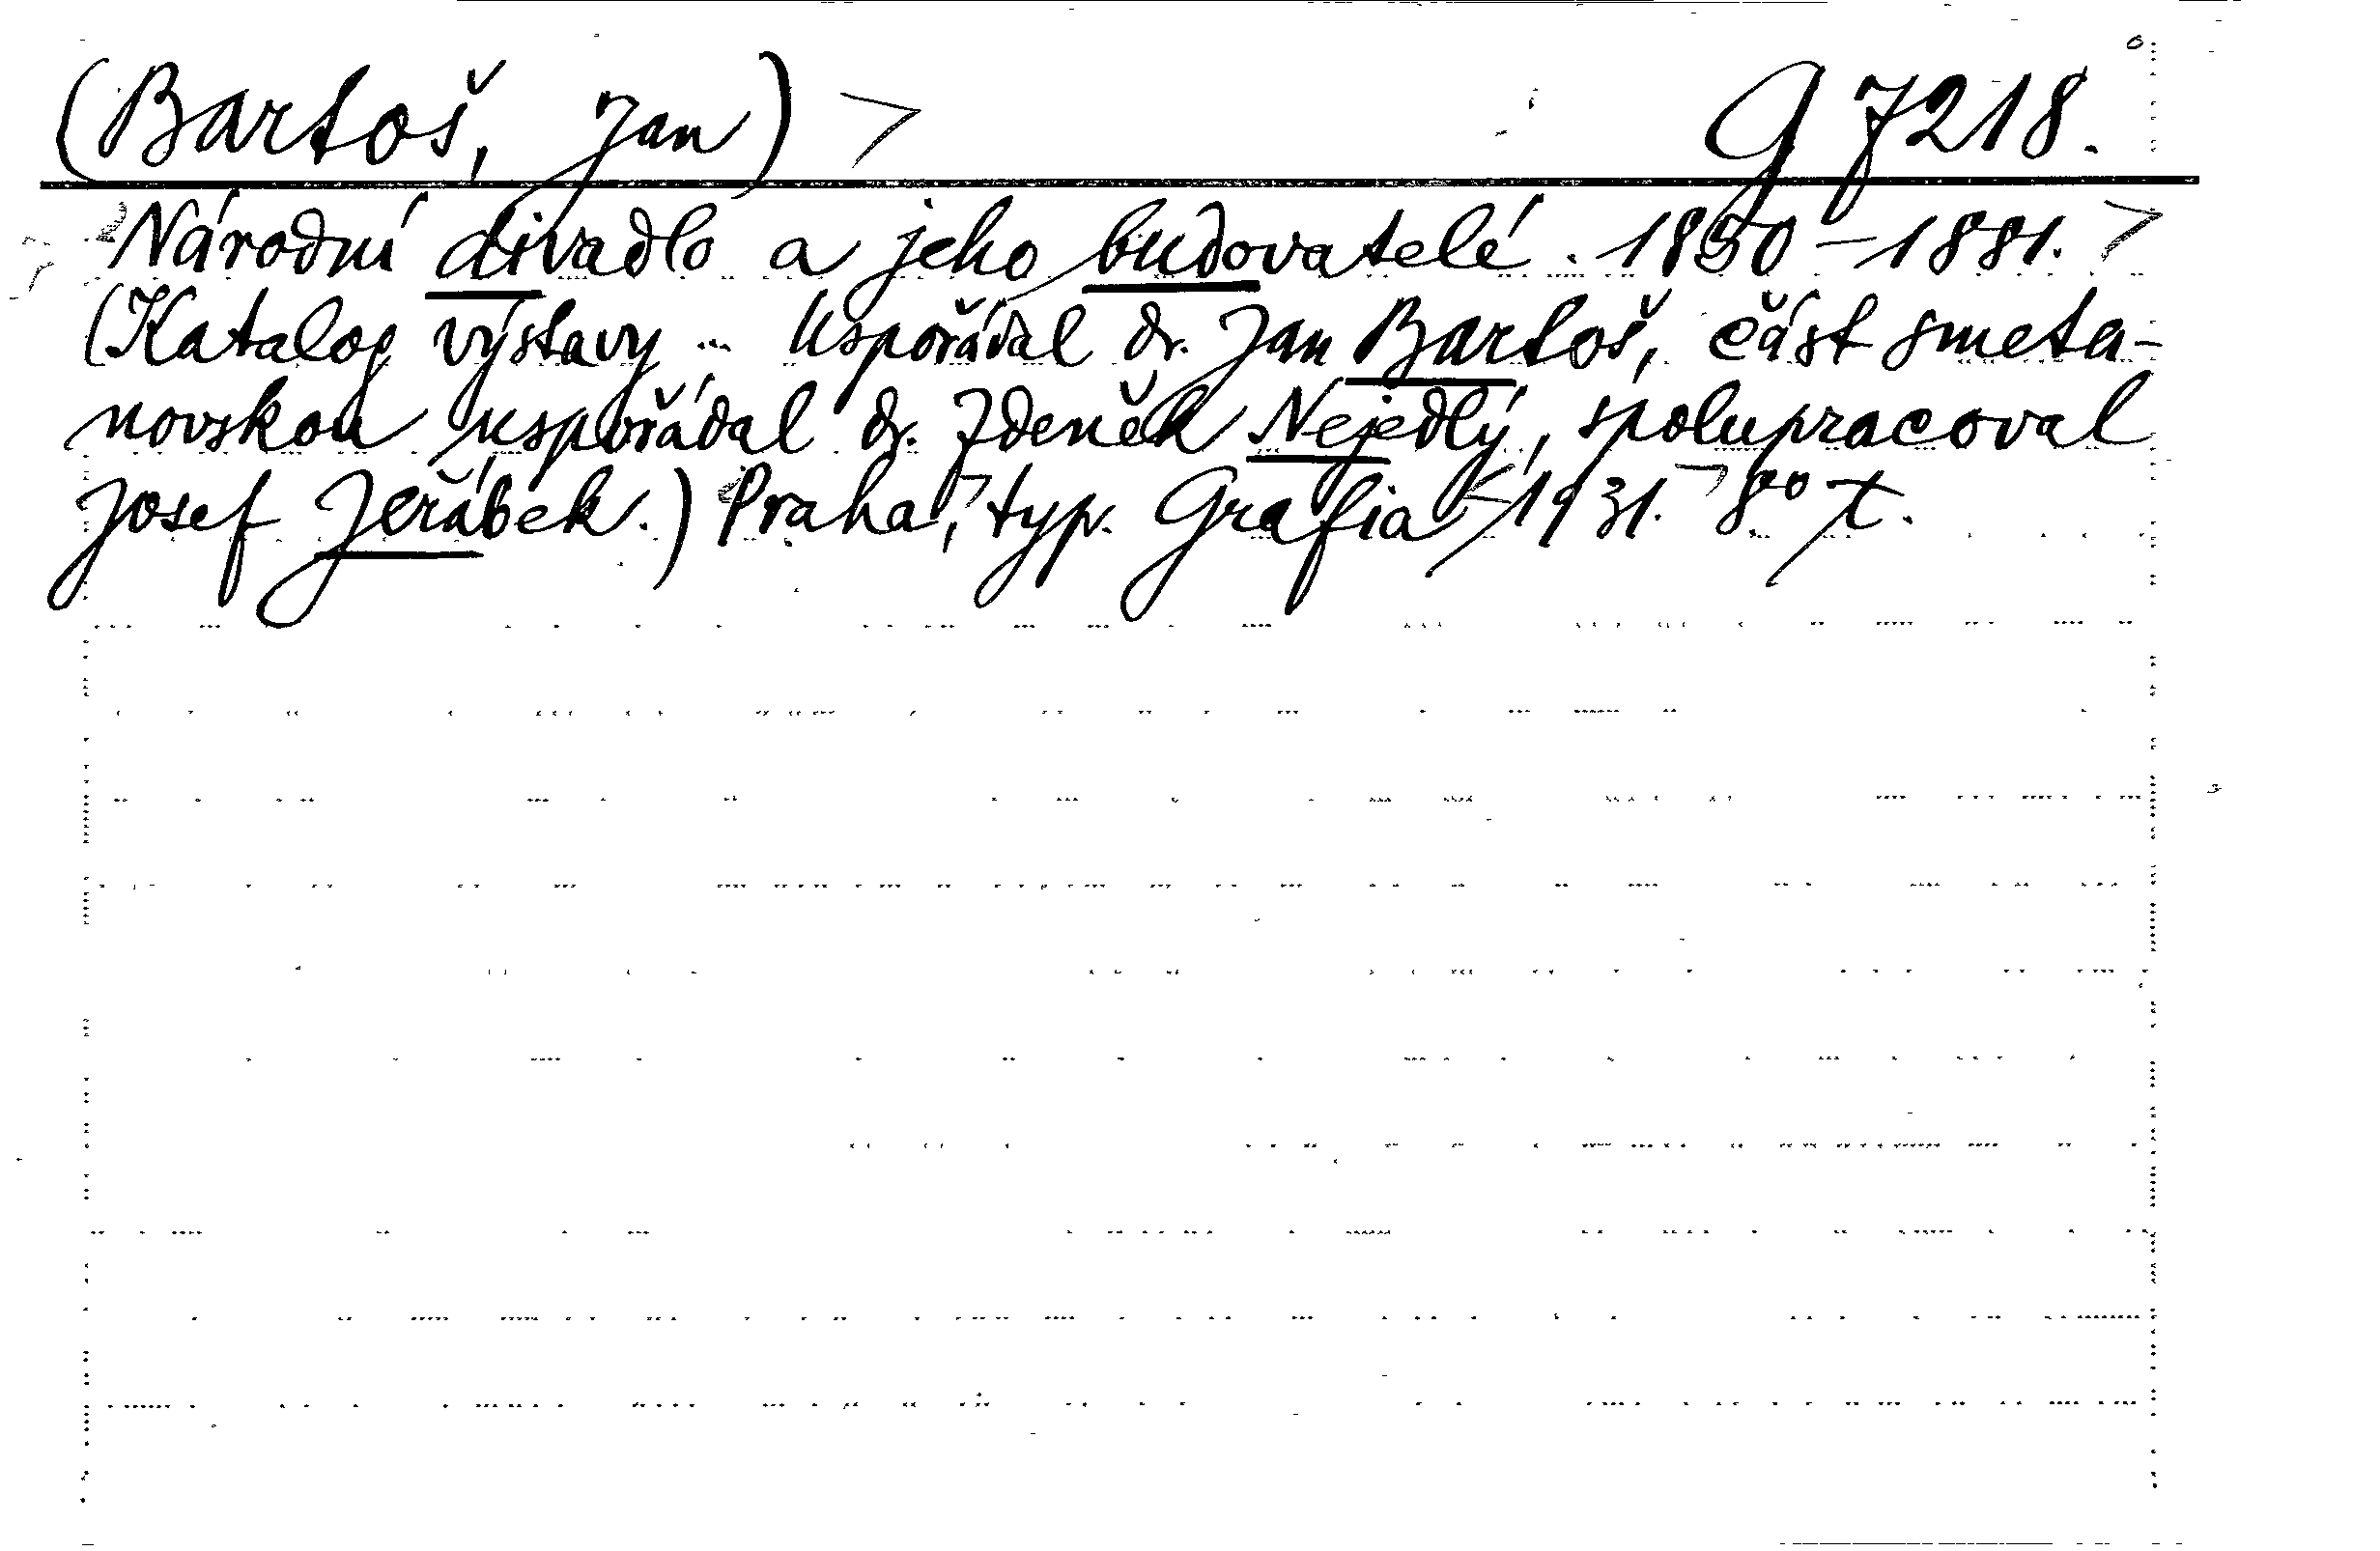 (Bartoš, Jan) G 7218.
Národní divadlo a jeho budovatelé. 1850-1881.
(Katalog výstavy ... Uspořádal dr. Jan Bartoš, část smeta-
novskou uspořádal dr. Zdeněk Nejedlý, spolupracoval
Josef Jeřábek.) Praha, typ. Grafia 1931. 8° t.